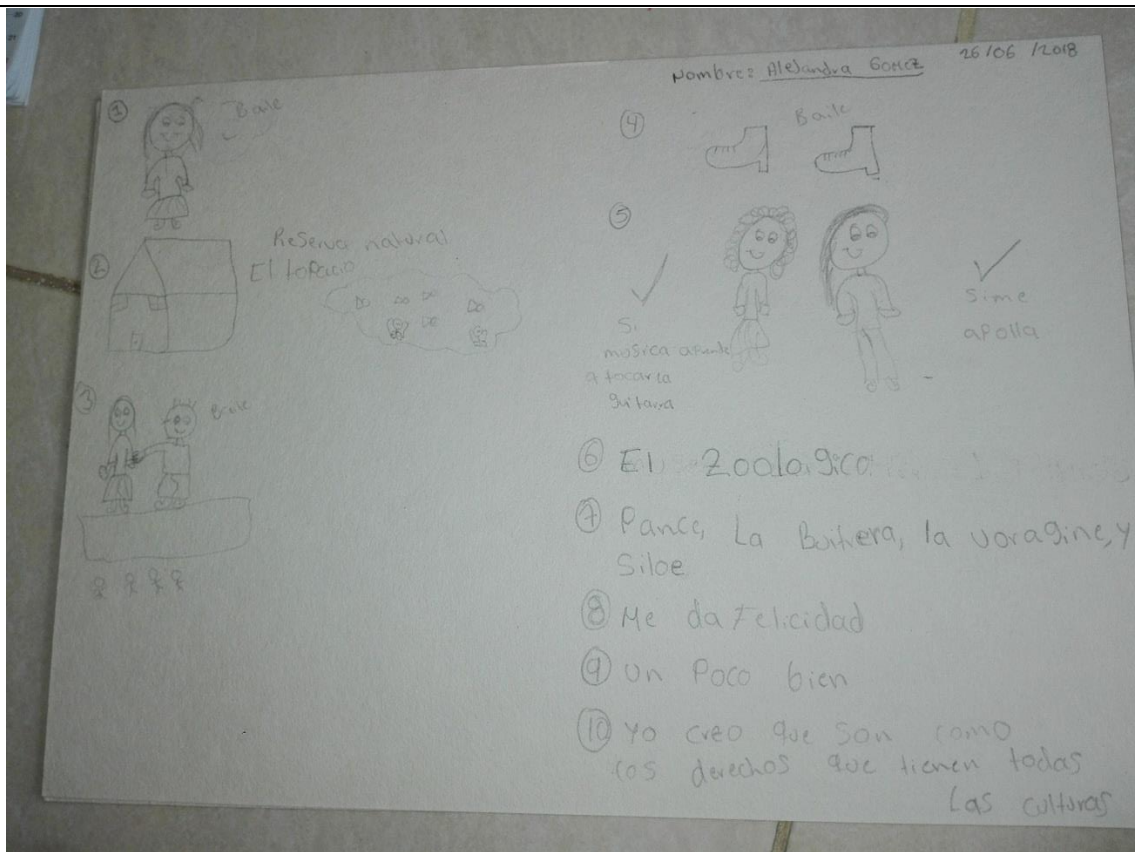 Nombre: Alejandra Gomez
26/06/2018
① Baile
② Reserva natural
El topacio
③
④ Baile
⑤
Si
mosica
a tocar la
guitarra
Si me
apolla
⑥ El Zoologico
⑦ Pance, La Buitrera, la voragine, y
Siloe
⑧ Me da Felicidad
⑨ Un Poco bien
⑩ Yo creo que son como
los derechos que tienen todas
Las culturas